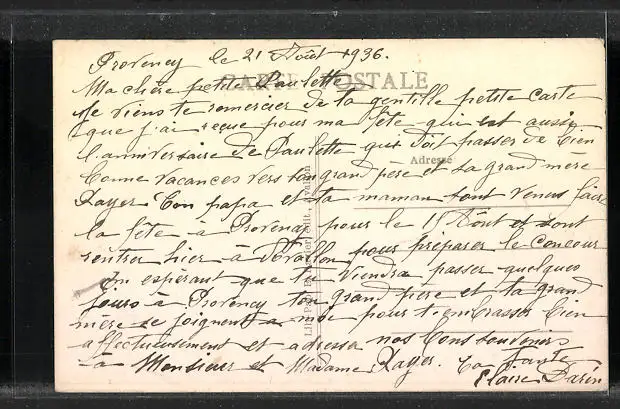 Provency le 21 Août 1936.
CARTE POSTALE
Ma chère petite Paulette
Je viens te remercier de ta gentille petite carte
que j'ai reçue pour ma fête qui est aussi
l'anniversaire de Paulette qui doit passer de bien
Adresse
bonne vacances vers son grand père et sa grand mère
Rayer ton papa et ta maman sont venus faire
la fête à Provency pour le 15 Aôut et sont
rentrer hier à Avallon pour préparer le concour
En espérant que tu viendra passer quelques
jours à Provency ton grand père et ta grand
mère se joignent a moi pour t'embrasser bien
affectueusement et adresse nos bons souvenirs
à Monsieur et Madame Rayer. ta tante
Claire
édit., Avallon